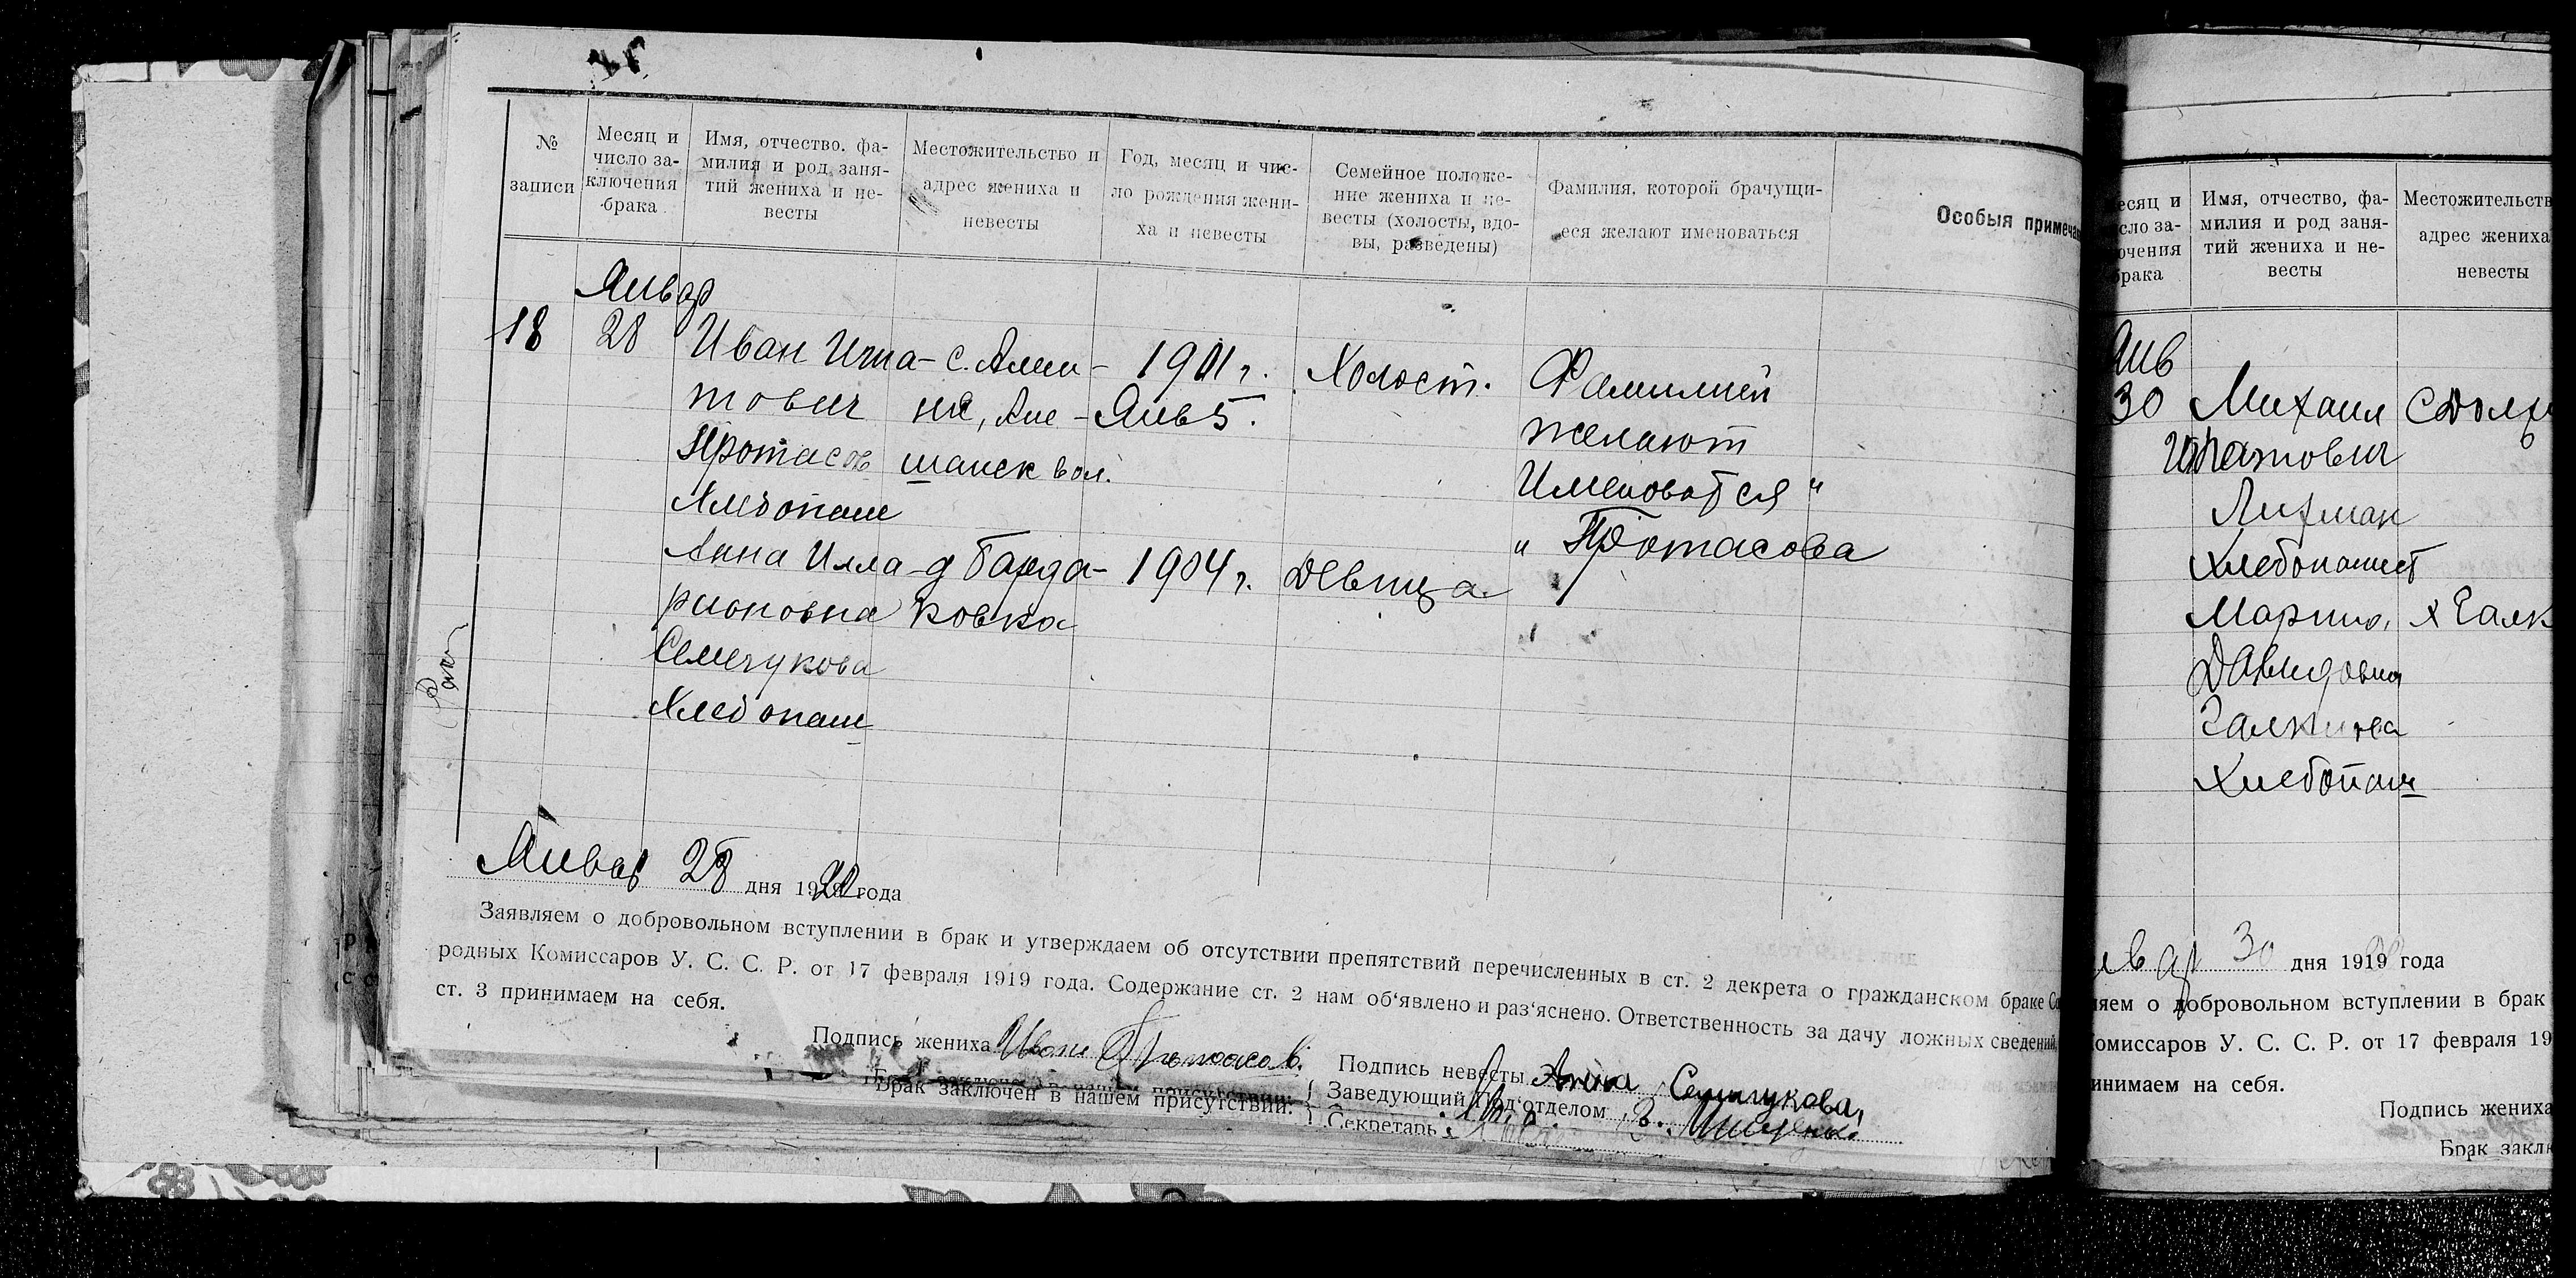 № записи
Месяц и число заключения брака
Имя, отчество. фамилия и род занятий жениха и невесты
Местожительство и адрес жениха и невесты
Год, месяц и число рождения жениха и невесты
Семейное положение жениха и невесты (холосты, вдовы, разведены)
Фамилия, которой брачущиеся желают именоваться
Особыя примеча
Январ
18 28 Иван Игна- с. Алеш- 1901 г. Холост. Фамилией
тович ня, Але- Янв 5. желают
Протасов шанск вол. Именоватся "
Хлебопаш
Анна Илла- д Барда- 1904 г. Девица " Протасова
рионовна ковка
Семчукова
Хлебопаш
Январ 28 дня 1920 года
Заявляем о добровольном вступлении в брак и утверждаем об отсутствии препятствий перечисленных в ст. 2 декрета о гражданском браке Со
родных Комиссаров У. С. С. Р. от 17 февраля 1919 года. Содержание ст. 2 нам об‘явлено и раз‘яснено. Ответственность за дачу ложных сведений,
ст. 3 принимаем на себя.
Подпись жениха Иван Протасов. Подпись невесты Анна Семчукова,
Брак заключен в нашем присутствии: Заведующий Под‘отделом
Секретарь
есяц и
сло за-
ючения
брака
Имя, отчество, фамилия и род занятий жениха и невесты
Местожительств
адрес жениха
невесты
Янв
30 Михаил
Игнатович
Лихман
Хлебопашест
Мария, х Галк
Давидовна
Галкина
Хлебопаш
нвар 30 дня 1919 года
ляем о добровольном вступлении в брак
Комиссаров У. С. С. Р. от 17 февраля 19
инимаем на себя.
Подпись жениха
Брак заклю